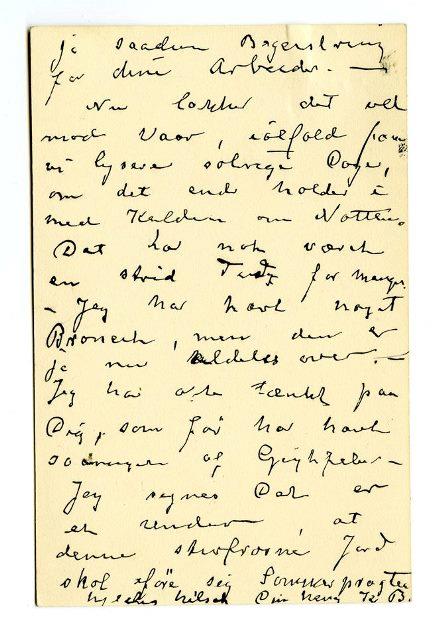 ja saadan
for dine Arbeider. —
Nu lakker det vel
mod Vaar, faar
vi lysere solrige Dage,
om det end holder i
med Kulden om Natten.
Det har nok været
en strid Tid for mange.
– Jeg har havt noget
Bronchit, men den er
ja nu aldeles over. –
Jeg har ofte tænkt paa
Dig, som før har havt
af
Jeg synes Det er
et under, at
denne stivfrosne Jord
skal iføre sig Sommerpragten
hilsen Din